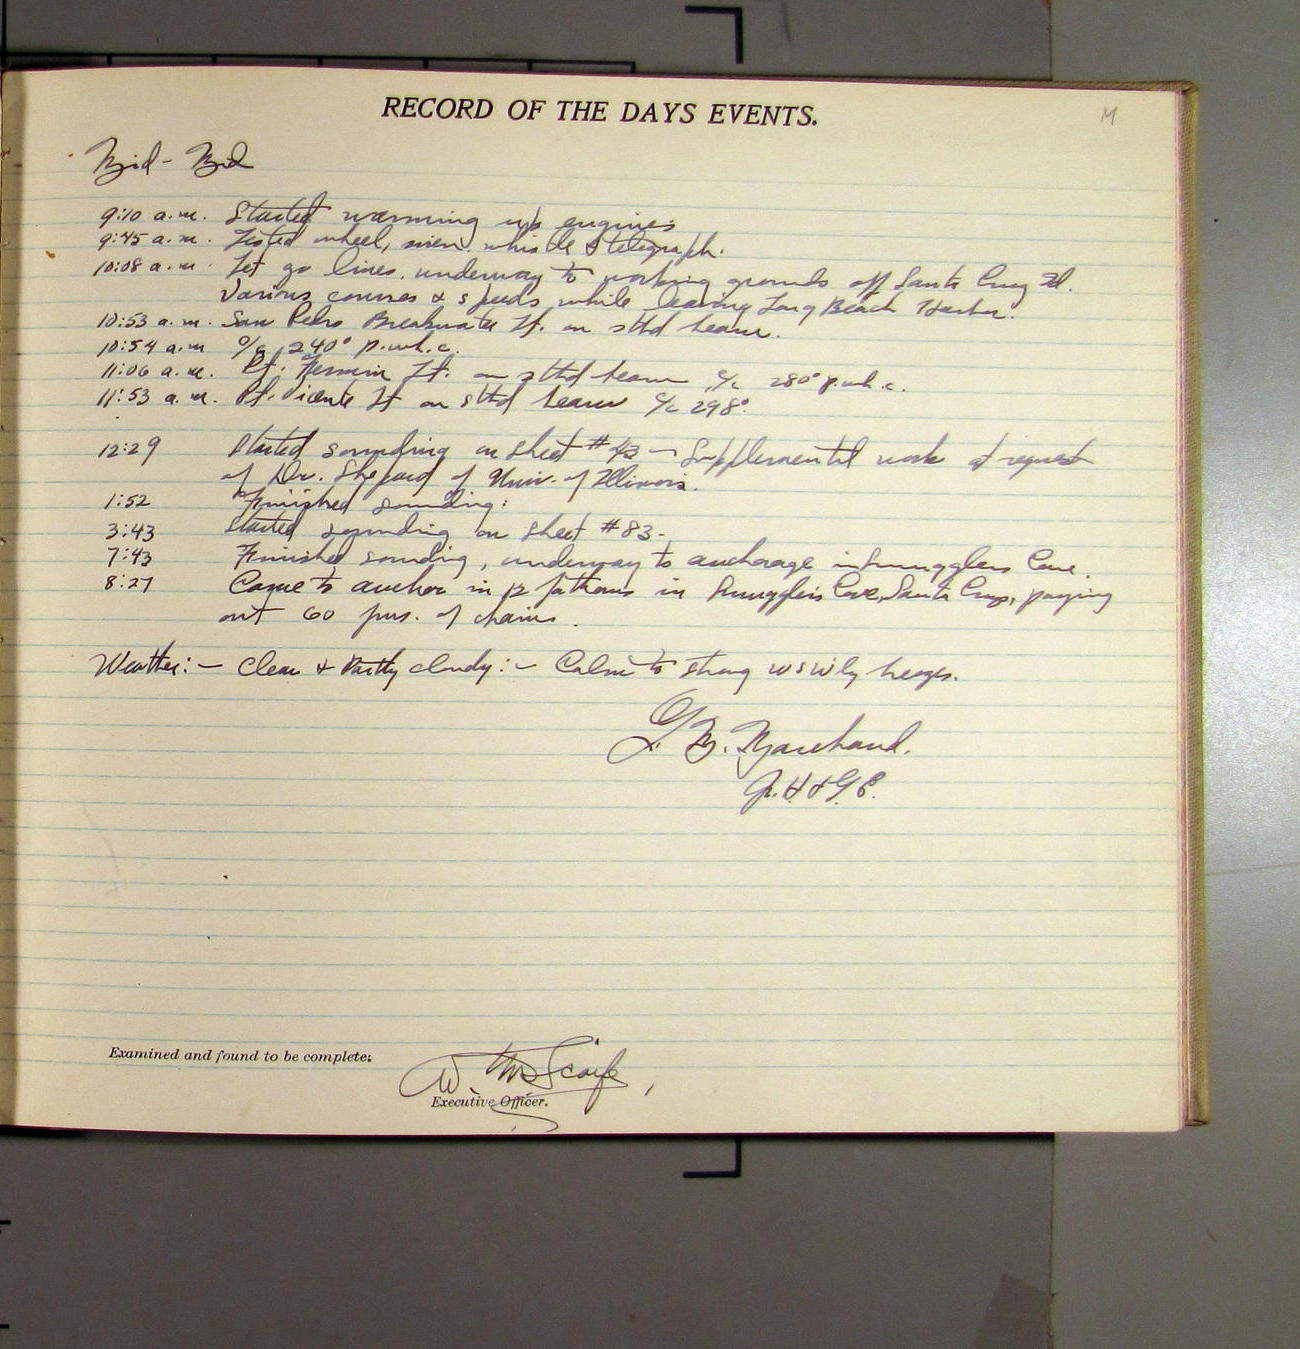 RECORD OF THE DAYS EVENTS.
M
Mid - Mid
9:10 a.m. Started warming up engines
9:45 a.m. Tested wheel, siren. whistle & telegraph.
10:08 a.m. Let go lines. underway to working grounds off Santa Cruz Id.
Various courses & speeds while leaving Long Beach Harbor.
10:53 a.m. San Pedro Breakwater Lt. on stbd beam.
10:54 a.m c/c 240° p.wh.c.
11:06 a.m. Pt. Fermin Lt. on stbd beam c/c 280° p.wh.c.
11:53 a.m. Pt. Vicente Lt on stbd beam c/c 298°.
12:29 Started sounding on sheet #43 - Supplemental work at request
of Dr. Shepard of Univ. of Illinois.
1:52 Finished sounding:
3:43 Started sounding on sheet #83-
7:43 Finished sounding, underway to anchorage in Smugglers Cove.
8:27 Came to anchor in 12 fathoms in Smugglers Cove, Santa Cruz, paying
out 60 fms. of chain.
Weather:- Clear & Partly cloudy:- Calm to strong wswily breezes.
Marchand.
Jr. H & G E.
Examined and found to be complete:
W. M. Scaife,
Executive Officer.